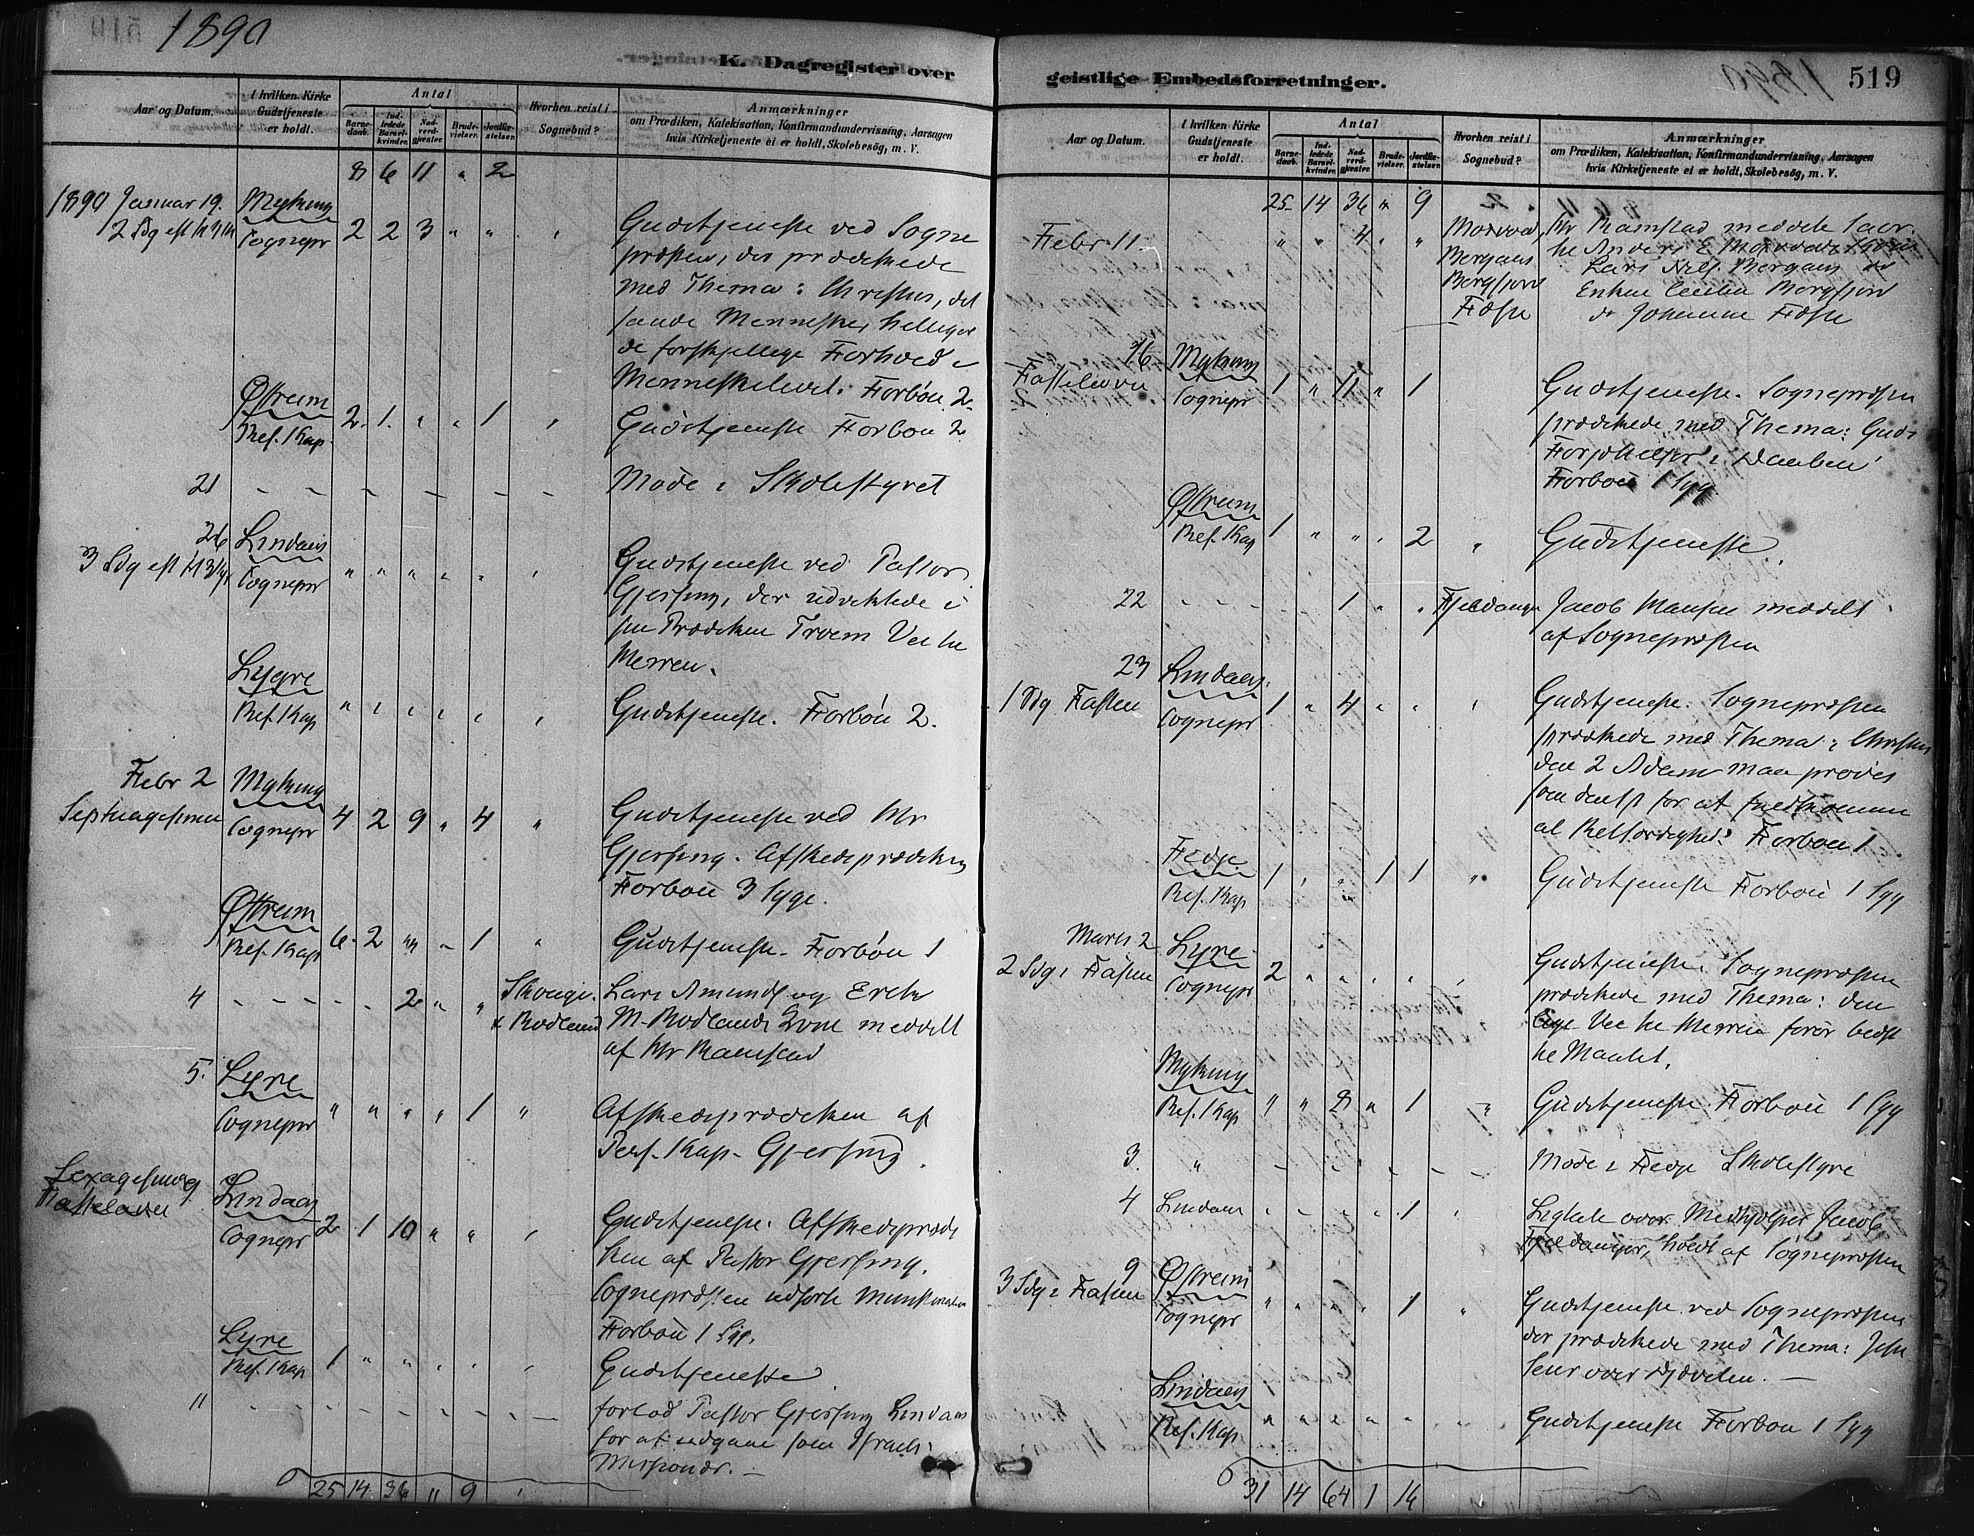 1890
K. Dagregister over
Aar og Datum.
I hvilken Kirke Gudstjeneste er holdt.
Antal
Barnedaab.
Indledede Barselkvinder.
Nadverdgjæster.
Brudevielser.
Jordfæstelser.
Hvorhen reist i Sognebud?
Anmærkninger
om Prædiken, Katekisation, Konfirmandundervisning, Aarsagen
hvis Kirketjeneste ei er holdt, Skolebesøg, m. V.
8 6 11 " 2
1890 Januar 19. Myking
Sognepr 2 2 3 " " Gudstjeneste ved Sogne
præsten, der prædikede
med Thema: Christus, det
sande Menneske, helliger
de forskjellige Forhold i
Menneskelivet. Forbøn 2
Østreim
Pers. Kap 2 1 " " 1 Gudstjeneste Forbøn 2
21 – – – – – – Møde i Skolestyret
26 Lindaas
Sognepr " " " " " Gudstjeneste ved Pastor
Gjersing, der udviklede i
sin Prædiken Troens Vei til
Herren.
Lygre
Pers. Kap " " " " " Gudstjeneste. Forbøn 2.
Febr 2 Myking
Septuagesima Sognepr 4 2 9 " 4 " Gudstjeneste ved Hr
Gjersing. Afskedsprædiken
Forbøn 3 syge.
Østreim
Pers. Kap 6 2 " " 1 " Gudstjeneste. Forbøn 1
4 – – – 2 " " Lars Amunds og Erik
& Rødland M. Rødlands Kone meddelt
af Hr Ramstad
5. Lyre
Sognepr " " " " 1 " Afskedsprædiken af
Pers. Kap. Gjersing.
Sexagesima 9. Lindaas
Fastelavn Sognepr 2 1 10 " " Gudstjeneste. Afskedspræd
ken af Pastor Gjersing.
Sognepræsten udførte
Forbøn 1 Syg.
Lyre
Pers. Kap 1 " " " " Gudstjeneste
11 – – – – – – – forlod Pastor Gjersing Lindaas
for at udgaae som Israels
Missionær. –
25 14 36 " 9
geistlige Embedsforretninger.
519
Aar og Datum.
I hvilken Kirke Gudstjeneste er holdt.
Antal
Barnedaab.
Indledede Barselkvinder.
Nadverdgjæster.
Brudevielser.
Jordfæstelser.
Hvorhen reist i Sognebud?
Anmærkninger
om Prædiken, Katekisation, Konfirmandundervisning, Aarsagen
hvis Kirketjeneste ei er holdt, Skolebesøg, m. V.
25 14 36 " 9
Febr 11. " " 4 " " Hr Ramstad meddelte
Bergaas Lars Nels. Bergaas
Bergfjord Enken Cecilia Bergfjord
Johanne
16 Myking
Fastelavn Sognepr 1 " 11 " 1 Gudstjeneste. Sognepræsten
prædikede med Thema: Guds
i Daaben
Forbøn 1 Syg
Østreim
Pers. Kap 1 " " " 2 " Gudstjeneste.
22 – – – 1 " " Fjeldanger Jacob Hansen meddelt
af Sognepræsten
23 Lindaas
1 Sdg Fasten Sognepr 1 " 4 " " Gudstjeneste. Sognepræsten
prædikede med Thema: Christus
den 2 Adam maa prøves
som denst for at fuldkomme
al Retfærdighed. Forbøn 1.
Fedje
Pers. Kap 1 " " 1 1 " Gudstjeneste Forbøn 1 Syg
Marts 2 Lyre
2 Sdg i Fasten Sognepr 2 " " " " Gudstjeneste. Sognepræsten
prædikede med Thema: den
lige Vei til Herren fører bedst
til Maalet.
Myking
Pers. Kap " " 8 " 1 " Gudstjeneste Forbøn 1 Syg
3. " – – – – – Møde i Fedje Skolestyre
4 Lindaas – – – – 1 Ligtale over Medhjælper Jacob
Fjeldanger, holdt af Sognepræsten
9 Østreim
3 Sdg i Fasten Sognepr " " " " 1 " Gudstjeneste ved Sognepræsten
der prædikede med Thema: Jesu
Seier over Djævelen. –
Lindaas
Pers. Kap " " " " " Gudstjeneste Forbøn 1 Syg
31 14 64 1 16